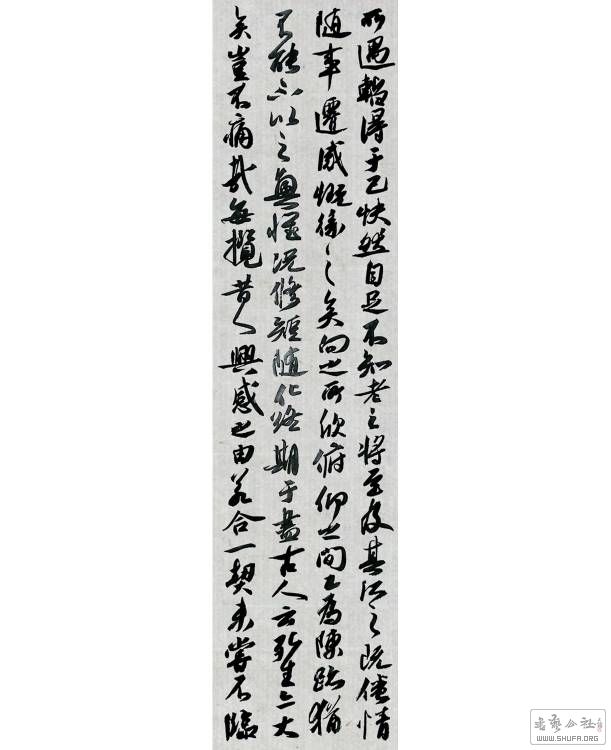 所遇輒得于己快然自足不知老之將至及其所之既倦情
隨事遷感慨係之矣向之所欣俯仰之間已為陳跡猶
不能不以之興懷況脩短隨化終期于盡古人云死生亦大
矣豈不痛哉每攬昔人興感之由若合一契未嘗不臨
書藝公社
WWW.SHUFA.ORG